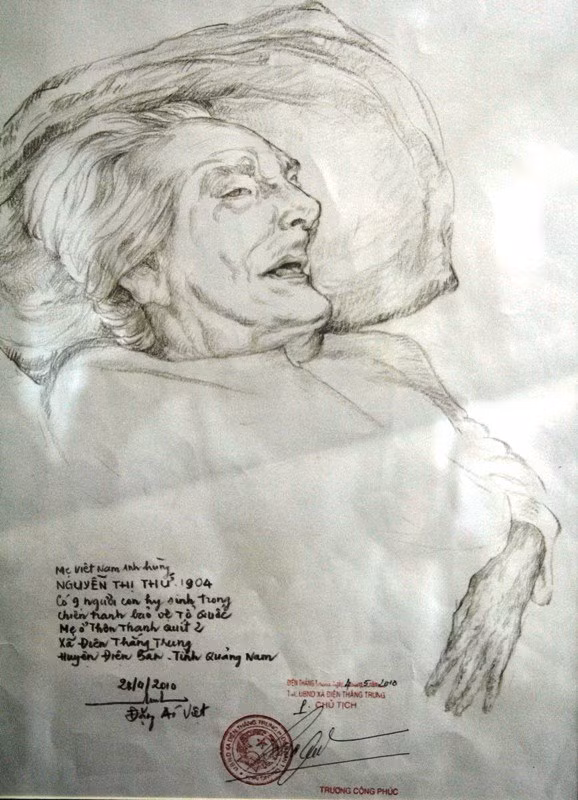 Mẹ Việt Nam Anh hùng
NGUYỄN THỊ THỨ. 1904
Có 9 người con hy sinh trong
chiến tranh bảo vệ Tổ Quốc
Mẹ ở Thôn Thanh Quít 2
Xã Điện Thắng Trung
Huyện Điện Bàn - Tỉnh Quảng Nam
Đặng Ái Việt
T.M. UBND XÃ ĐIỆN THẮNG TRUNG
CHỦ TỊCH
TRƯƠNG CÔNG PHÚC